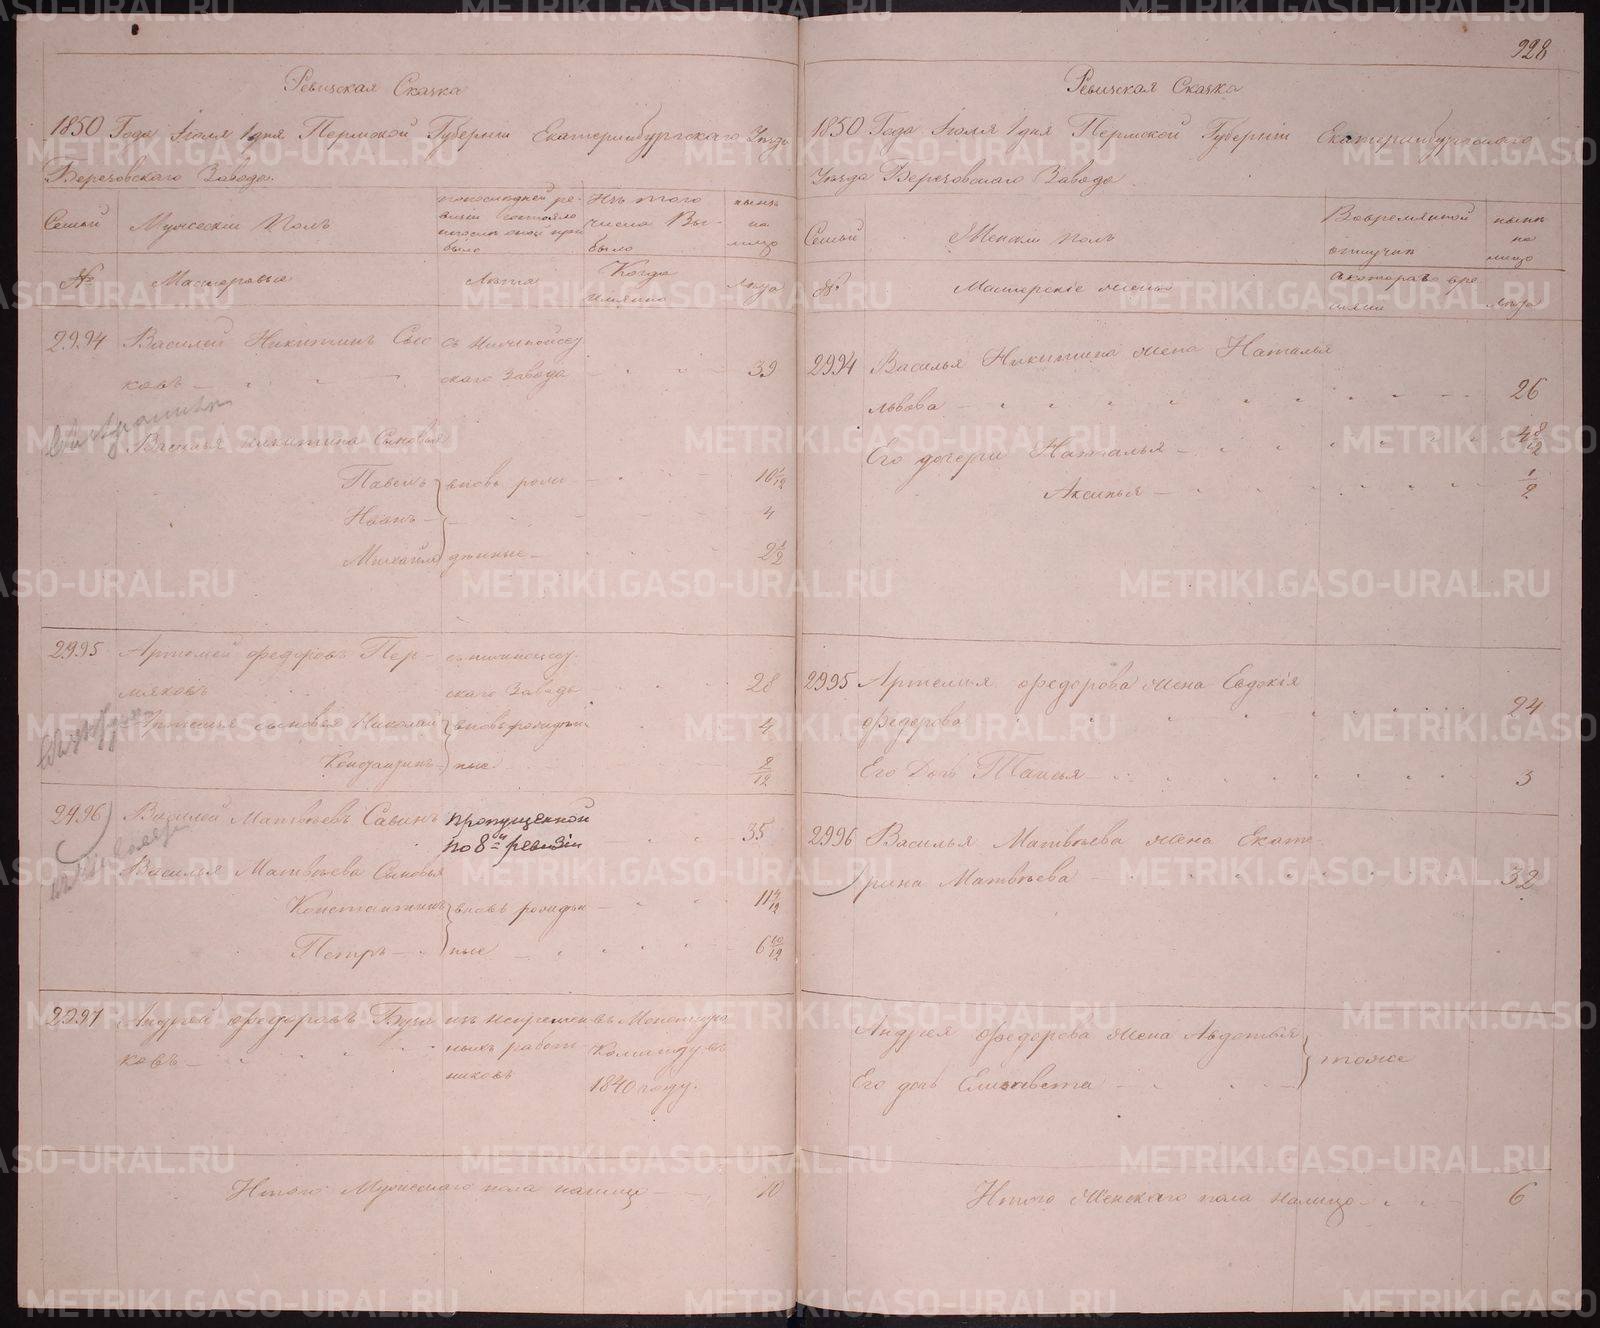 228
Ревизская Сказка
1850 Года Іюля 1 дня Пермской Губерніи Екатеринбургскаго Уѣзда
Березовскаго Завода.
Семьи
Мужескій Полъ
по последней ревизіи состояло
и после оной при
было
Изъ того
числа Вы-
было
нынѣ
на
лицо
№
Мастеровые
Лѣта
Когда
имянно
Лѣта
2994 Василей Никитинъ
ковъ
скаго Завода 39
Василья Никитина Сыновья
Павелъ вновь рож- 10
Иванъ 4
Михайла денные 2 1/2
2995 Артемей Федоровъ Пер-
мяковъ
скаго Завода 28
Артемья сыновья Николай вновь рожден 4
Константинъ ные
2996 Василей Матвѣевъ Савинъ пропущенной
по 8й ревизіи 35
Василья Матвѣева Сыновья
Константинъ вновь рожден 11
Петръ ные 6 10/12
2997 Андрей Федоровъ
ковъ
изъ непремен
ныхъ работ
никовъ
Команду въ
1840 году.
Итого Мужескаго пола налицо 10
Ревизская Сказка
1850 Года Іюля 1 дня Пермской Губерніи Екатеринбургскаго
Уѣзда Березовскаго Завода
Семьи
Женскій полъ
Вовременной
отлучки
нынѣ
на
лицо
№
Мастерскіе жены
а котораго вре
мяни
Лѣта
2994 Василья Никитина жена Наталья
Львова 26
Его дочери Наталья 4 8/12
Аксинья 1/2
2995 Артемья Федорова жена Евдокія
Федорова 24
Его Дочь Таисья 3
2996 Василья Матвѣева жена Екате-
рина Матвѣева 32
Андрея Федорова жена Авдотья
Его дочь Елизавета
тоже
Итого Женскаго пола налицо 6
METRIKI.GASO-URAL.RU